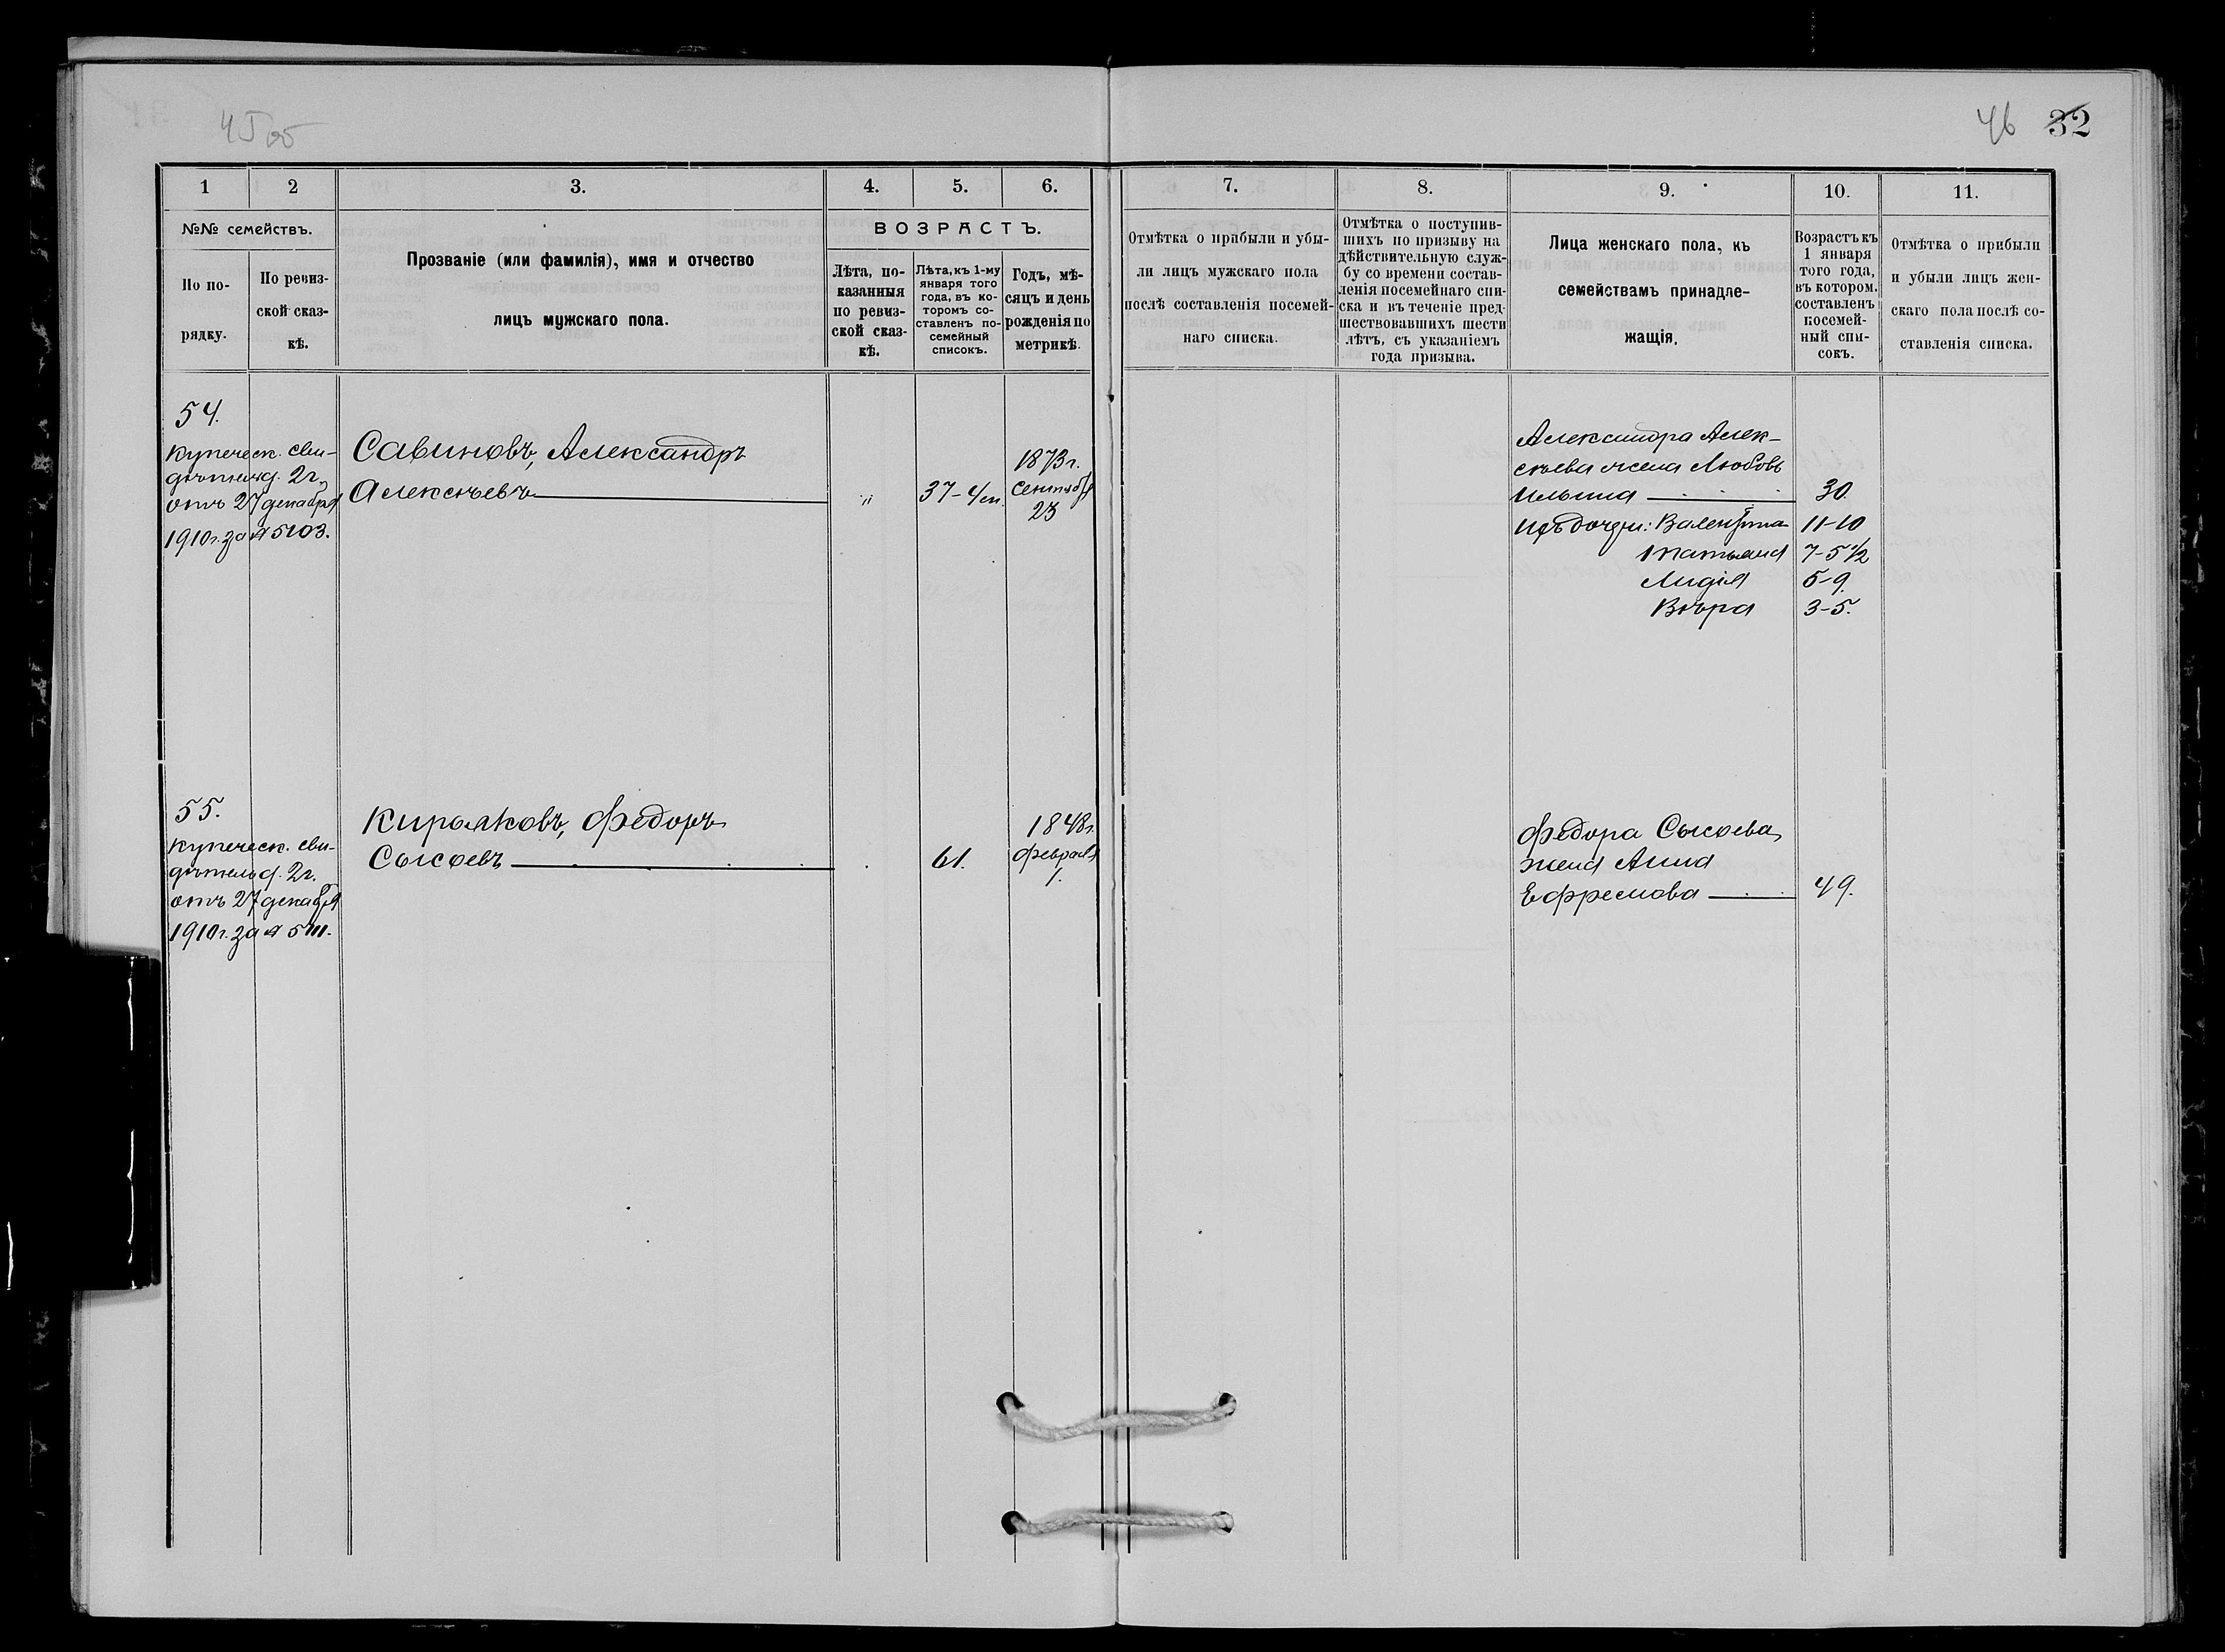 45 об
46 32
1 2 3. 4. 5. 6. 7. 8. 9. 10. 11.
№№ семействъ.
По по-
рядку.
По ревиз-
ской сказ-
кѣ.
Прозваніе (или фамилія), имя и отчество
лицъ мужскаго пола.
ВОЗРАСТЪ.
Лѣта, по-
казанныя
по ревиз-
ской сказ-
кѣ.
Лѣта, къ 1-му
января того
года, въ ко-
торомъ со-
ставленъ по-
семейный
списокъ.
Годъ, мѣ-
сяцъ и день
рожденія по
метрикѣ.
Отмѣтка о прибыли и убы-
ли лицъ мужскаго пола
послѣ составленія посемей-
наго списка.
Отмѣтка о поступив-
шихъ по призыву на
дѣйствительную служ-
бу со времени состав-
ленія посемейнаго спи-
ска и въ теченіе пред-
шествовавшихъ шести
лѣтъ, съ указаніемъ
года призыва.
Лица женскаго пола, къ
семействамъ принадле-
жащія.
Возрастъ къ
1 января
того года,
въ котором.
составленъ
посемей-
ный спи-
сокъ.
Отмѣтка о прибыли
и убыли лицъ жен-
скаго пола послѣ со-
ставленія списка.
54.
купеческ. сви-
дѣтельд. 2г.
отъ 27 декабря
1910г. за № 5103.
Савиновъ, Александръ
Алексѣевъ
"
37-4м.
1873г.
Сентября
23
Александра Алек-
сѣева жена Любовь
Ильина 30
Ихъ дочери: Валентина 11-10
Татьяна 7-5½
Лидія 5-9.
Вѣра 3-5.
55.
купеческ. сви-
дѣтельд. 2г.
отъ 27 декабря
1910г. за № 5111.
Кирьяковъ, Федоръ
Сысоевъ
61.
1848г.
февраля
1.
Федора Сысоева,
жена Анна
Ефремова 49.